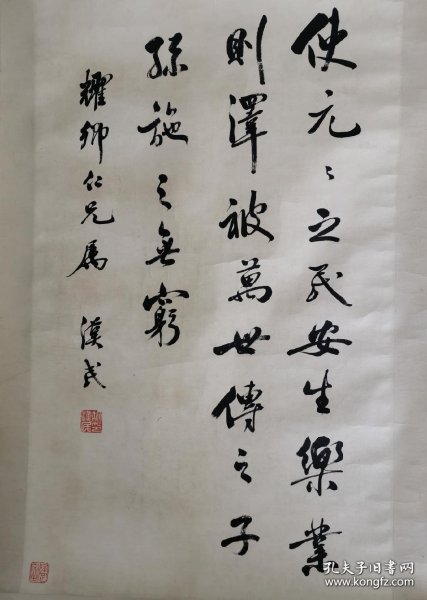 使元〻之民安生樂業
則澤被萬世傳之子
孫施之無窮
耀卿仁兄屬 漢民
孔夫子旧书网
kongfz.com